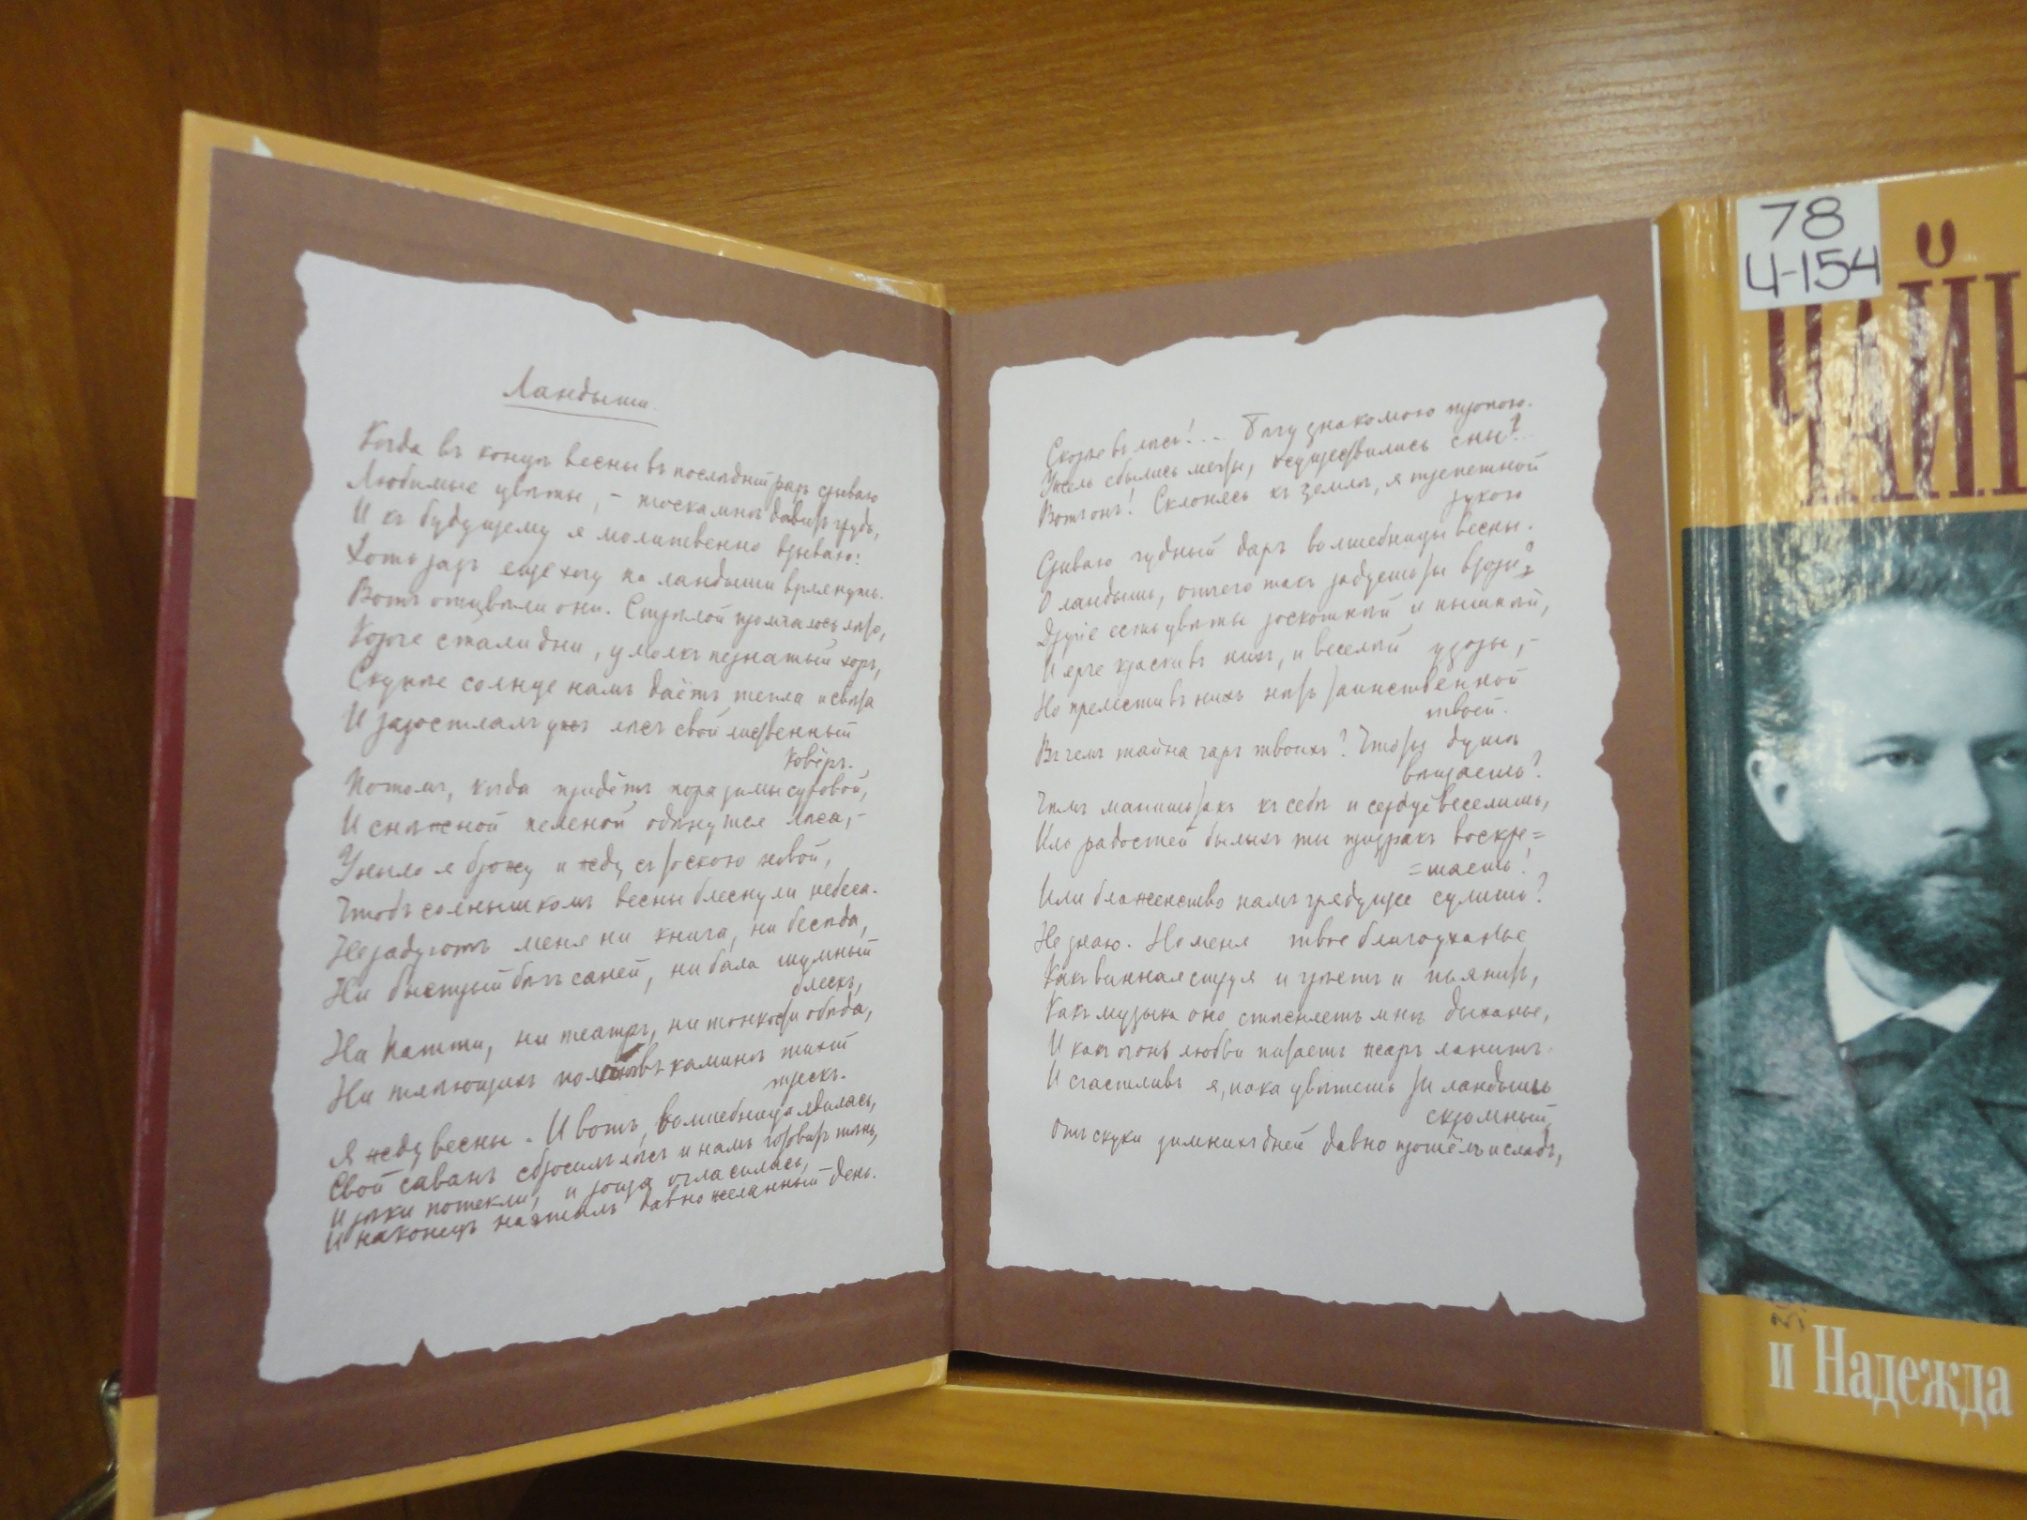 Ландыши
Когда въ концѣ весны въ послѣдній разъ срываю
Любимые цвѣты, – тоска мнѣ давитъ грудь,
И къ будущему я молитвенно взываю:
Хоть разъ еще хочу на ландыши взглянуть.
Вотъ отцвѣли они. Стрѣлой промчалось лѣто,
Короче стали дни, умолкъ пернатый хоръ,
Скупѣе солнце намъ даётъ тепла и свѣта
И разостлалъ ужъ лѣсъ свой лиственный
ковёръ.
Потомъ, когда придётъ пора зимы суровой,
И снѣжной пеленой одѣнутся лѣса, –
Уныло я брожу и жду съ тоскою новой,
Чтобъ солнышкомъ весны блеснули небеса.
Не радуютъ меня ни книга, ни бесѣда,
Ни быстрый бѣгъ саней, ни бала шумный
блескъ,
Ни Патти, ни театръ, ни тонкости обѣда,
Ни тлѣющихъ полѣньевъ каминѣ тихій
трескъ.
Я жду весны. И вотъ, волшебница явилась,
Свой саванъ сбросилъ лѣсъ и намъ готовитъ тѣнь,
И рѣки потекли, и роща огласилась,
И наконецъ насталъ давно желанный – день.
Скорѣе въ лѣсъ!... Бѣгу знакомою тропою.
Ужель сбылись мечты, осуществились сны?...
Вотъ онъ! Склонясь къ землѣ, я трепетной
рукою
Срываю чудный даръ волшебницы весны.
О ландышъ, отчего такъ радуешь ты взоры?
Другіе есть цвѣты роскошнѣй и пышнѣй,
И ярче краски въ нихъ, и веселѣй узоры, –
Но прелести въ нихъ нѣтъ таинственной
твоей.
Въ чемъ тайна чаръ твоихъ? Что ты душѣ
вѣщаешь?
Чѣмъ манишь такъ къ себѣ и сердце веселишь,
Иль радостей былыхъ ты призракъ воскре=
=шаешь!
Или блаженство намъ грядущее сулишь?
Не знаю. Но меня твое благоуханье
Какъ винная струя и грѣетъ и пьянитъ,
Какъ музыка оно стѣсняетъ мнѣ дыханье,
И какъ огонь любви питаетъ жаръ ланитъ
И счастливъ я, пока цвѣтешь ты ландышъ
скромный,
Отъ скуки зимнихъ дней давно прошёлъ и слѣдъ,
78
Ч-154
ЧАЙ
и Надежда